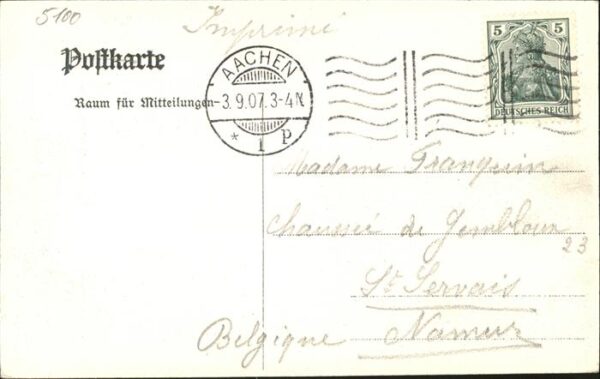 5100
Imprimé
Postkarte
Raum für Mitteilungen
AACHEN
3.9.07. 3-4N
* 1 P
5 5
DEUTSCHES REICH
Madame Franquin
Chaussée de Gembloux
23
St Servais
Belgique Namur